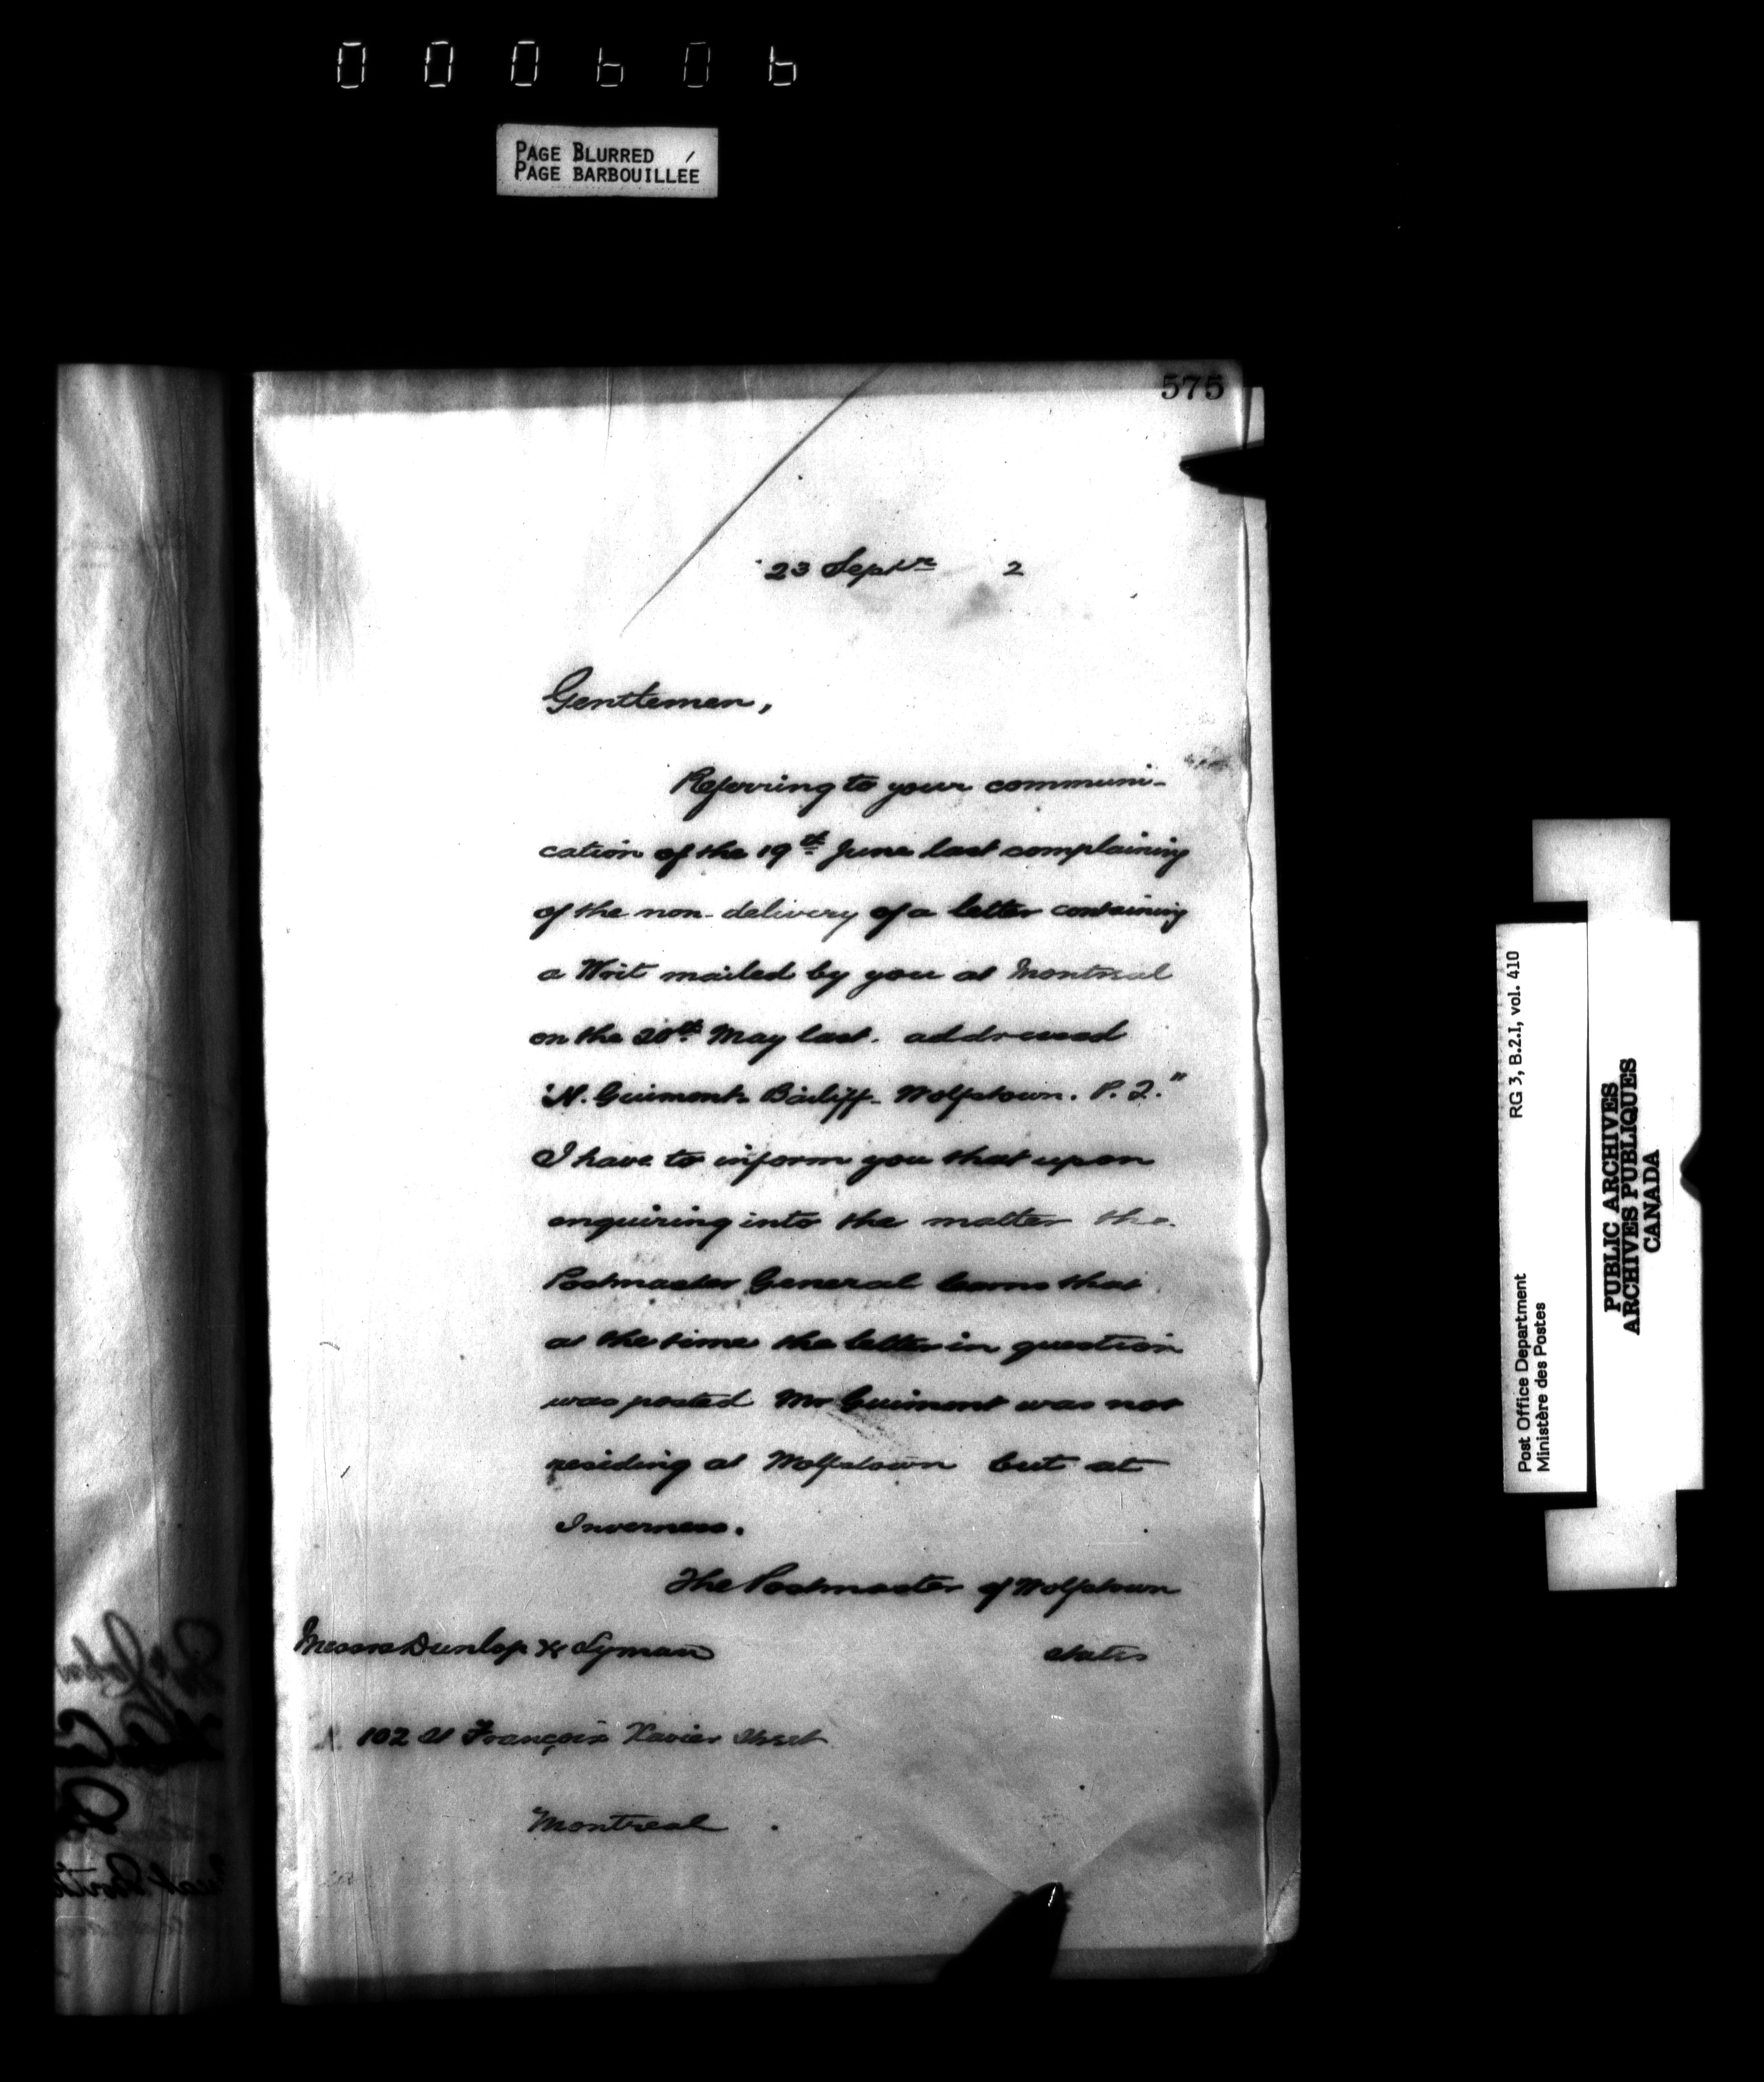 000606
PAGE BLURRED
PAGE BARBOUILLÉE
575
23 Septr 2
Gentlemen,
Referring to your communi-
cation of the 19th June last complaining
of the non-delivery of a letter containing
a Writ mailed by you at Montreal
on the 20th May last. addressed
"N. Guimont Bailiff. Wolfstown. P.Q."
I have to inform you that upon
enquiring into the matter the
Postmaster General learns that
at the time the letter in question
was posted Mr Guimont was not
residing at Wolfstown but at
Inverness.
The Postmaster of Wolfstown
Messrs Dunlop & Lyman
states
102 St François Xavier Street
Montreal
RG 3, B.2.I, vol. 410
Post Office Department
Ministère des Postes
PUBLIC ARCHIVES
ARCHIVES PUBLIQUES
CANADA